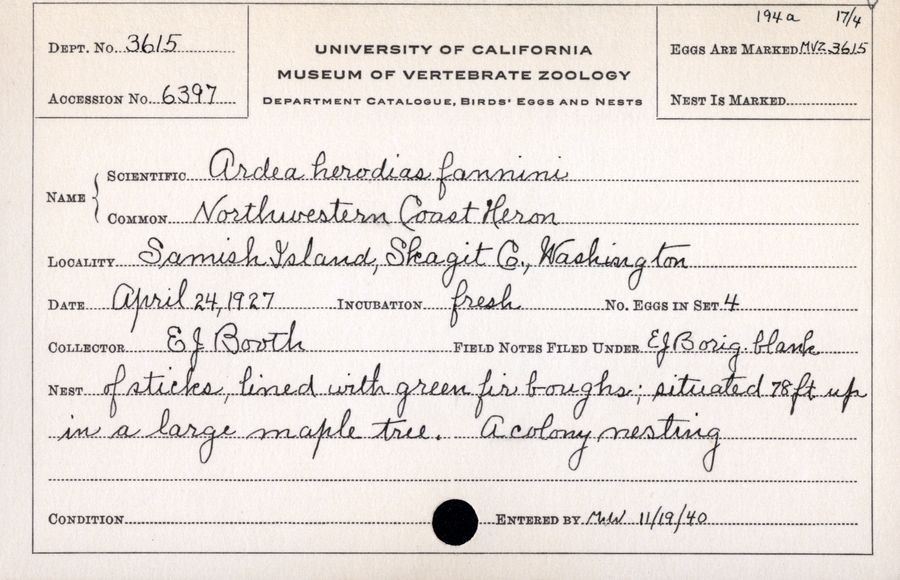 194a 17/4
DEPT. NO. 3615
UNIVERSITY OF CALIFORNIA
EGGS ARE MARKED MVZ 3615
MUSEUM OF VERTEBRATE ZOOLOGY
ACCESSION NO. 6397
DEPARTMENT CATALOGUE, BIRDS' EGGS AND NESTS
NEST IS MARKED
NAME
SCIENTIFIC Ardea herodias fannini
COMMON Northwestern Coast Heron
LOCALITY Samish Island, Skagit Co., Washington
DATE April 24, 1927 INCUBATION fresh NO. EGGS IN SET 4
COLLECTOR EJ Booth FIELD NOTES FILED UNDER EJB orig. blank
NEST of sticks, lined with green fir boughs; situated 78 ft up
in a large maple tree. A colony nesting
CONDITION ENTERED BY MW 11/19/40